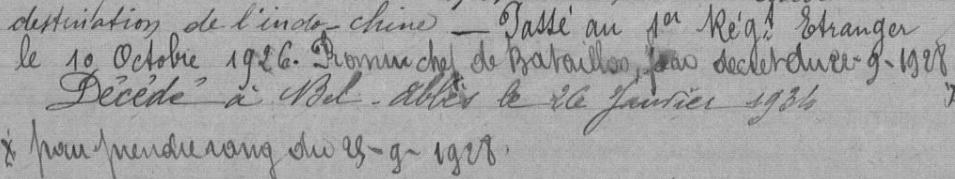 destination de l'indo-chine — Passé au 1er Régt Etranger
le 10 Octobre 1926. Promu chef de Bataillon, par decret du 22-9-1928 x
Décédé à Bel-Abbès le 26 Janvier 1934
x pour prendre rang du 25-9-1928.